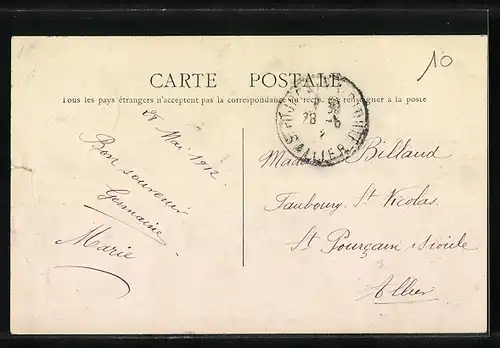 10
CARTE POSTALE
Tous les pays étrangers n'acceptent pas la correspondance au recto. se renseigner à la poste
28 Mai 1912
Bon souvenir
Germaine
Marie
28 -5
ALLIER
Madame Billaud
Faubourg St Nicolas
St Pourçain s Sioule
Allier